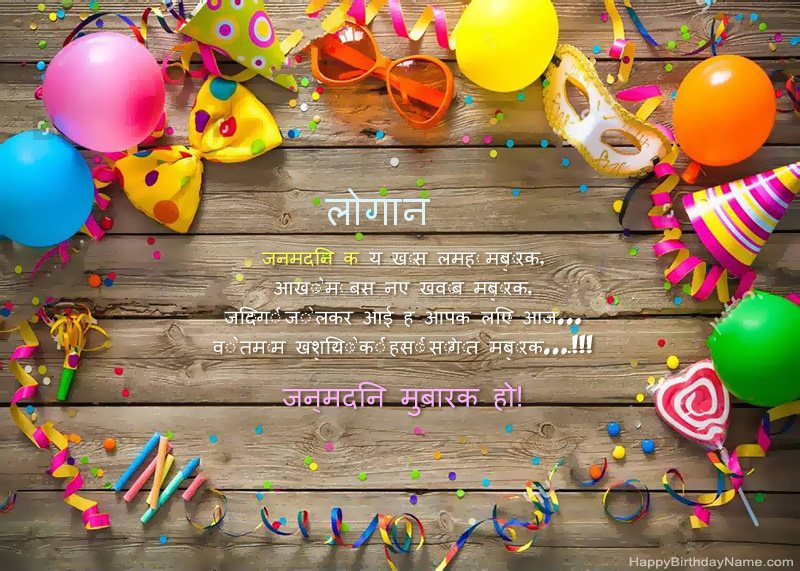 लोगान
जनमदिन क य खास लमहा मबारक,
आखों में बस नए खवाब मबारक,
जिंदगी जो लेकर आई ह आपक लिए आज...
वो तमाम खुशियों की हसीं सौगात मबारक...!!!
जन्मदिन मुबारक हो!
HappyBirthdayName.com